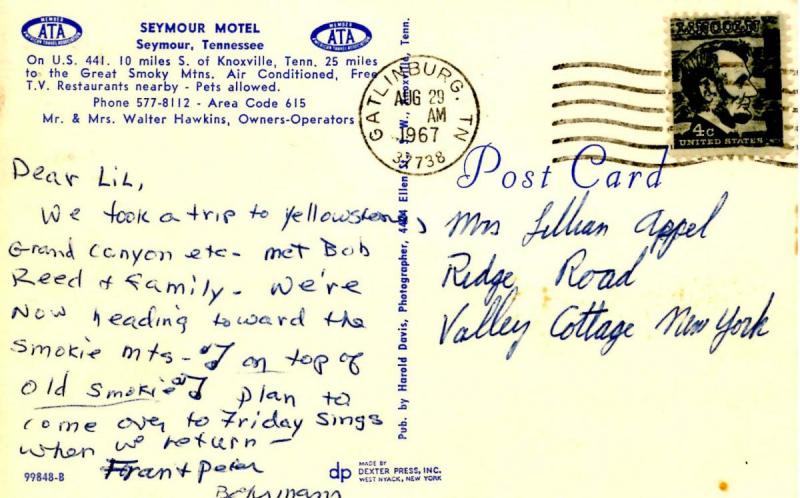 MEMBER
ATA
AMERICAN TRAVEL ASSOCIATION
SEYMOUR MOTEL
Seymour, Tennessee
MEMBER
ATA
AMERICAN TRAVEL ASSOCIATION
On U.S. 441. 10 miles S. of Knoxville, Tenn. 25 miles
to the Great Smoky Mtns. Air Conditioned, Free
T.V. Restaurants nearby - Pets allowed.
Phone 577-8112 - Area Code 615
Mr. & Mrs. Walter Hawkins, Owners-Operators
Dear Lil,
We took a trip to Yellowstone,
Grand Canyon etc- met Bob
Reed & family- We're
now heading toward the
Smokie Mts- on top of
Old Smokie plan to
come over to Friday Sings
when we return-
Fran + Peter
Behrmann
99848-B
Pub. by Harold Davis, Photographer, 4404 Ellen St. S. W., Knoxville, Tenn.
dp
MADE BY
DEXTER PRESS, INC.
WEST NYACK, NEW YORK
GATLINBURG, TN
AUG 29
AM
1967
37738
LINCOLN
4c
UNITED STATES
Post Card
Mrs Lillian Appel
Ridge Road
Valley Cottage New York